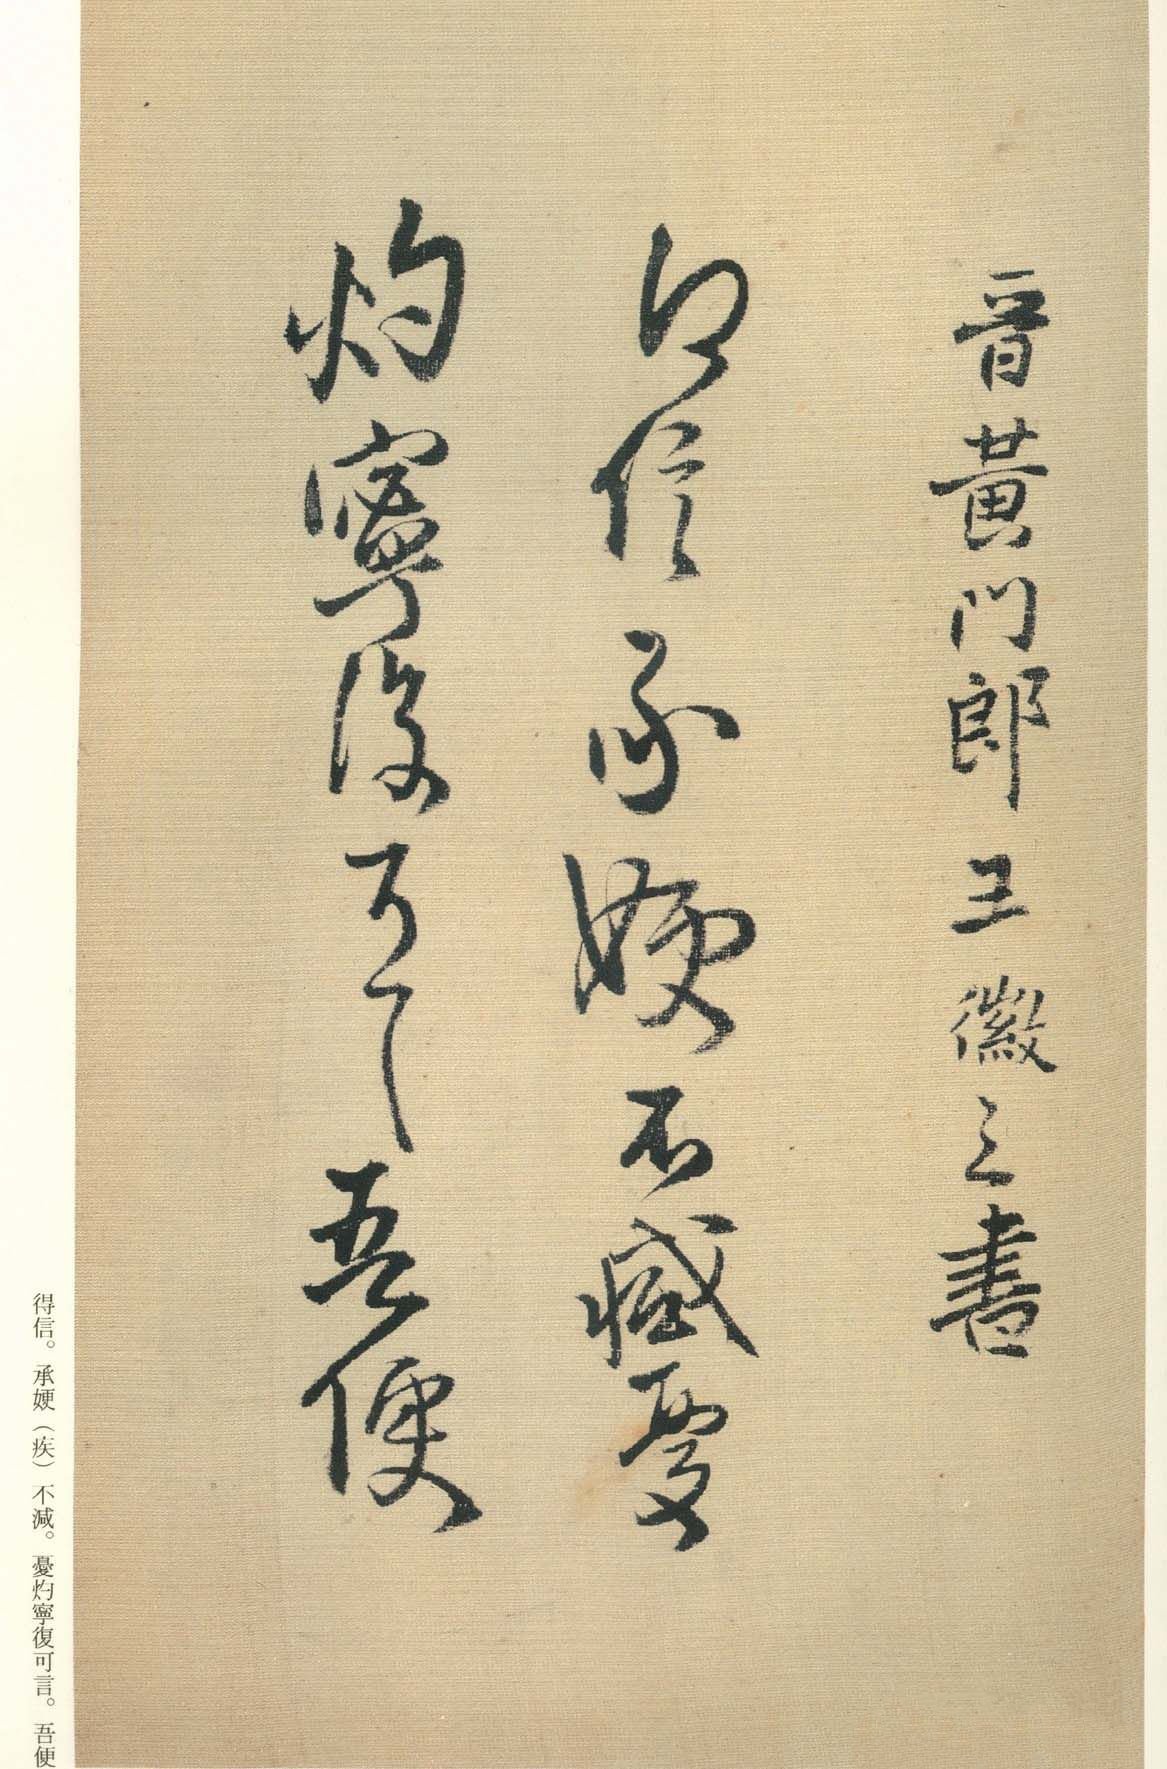 晉黃門郎王徽之書
得信承㛐不減憂
灼寧復可言吾便
得信。承㛐（疾）不減。憂灼寧復可言。吾便